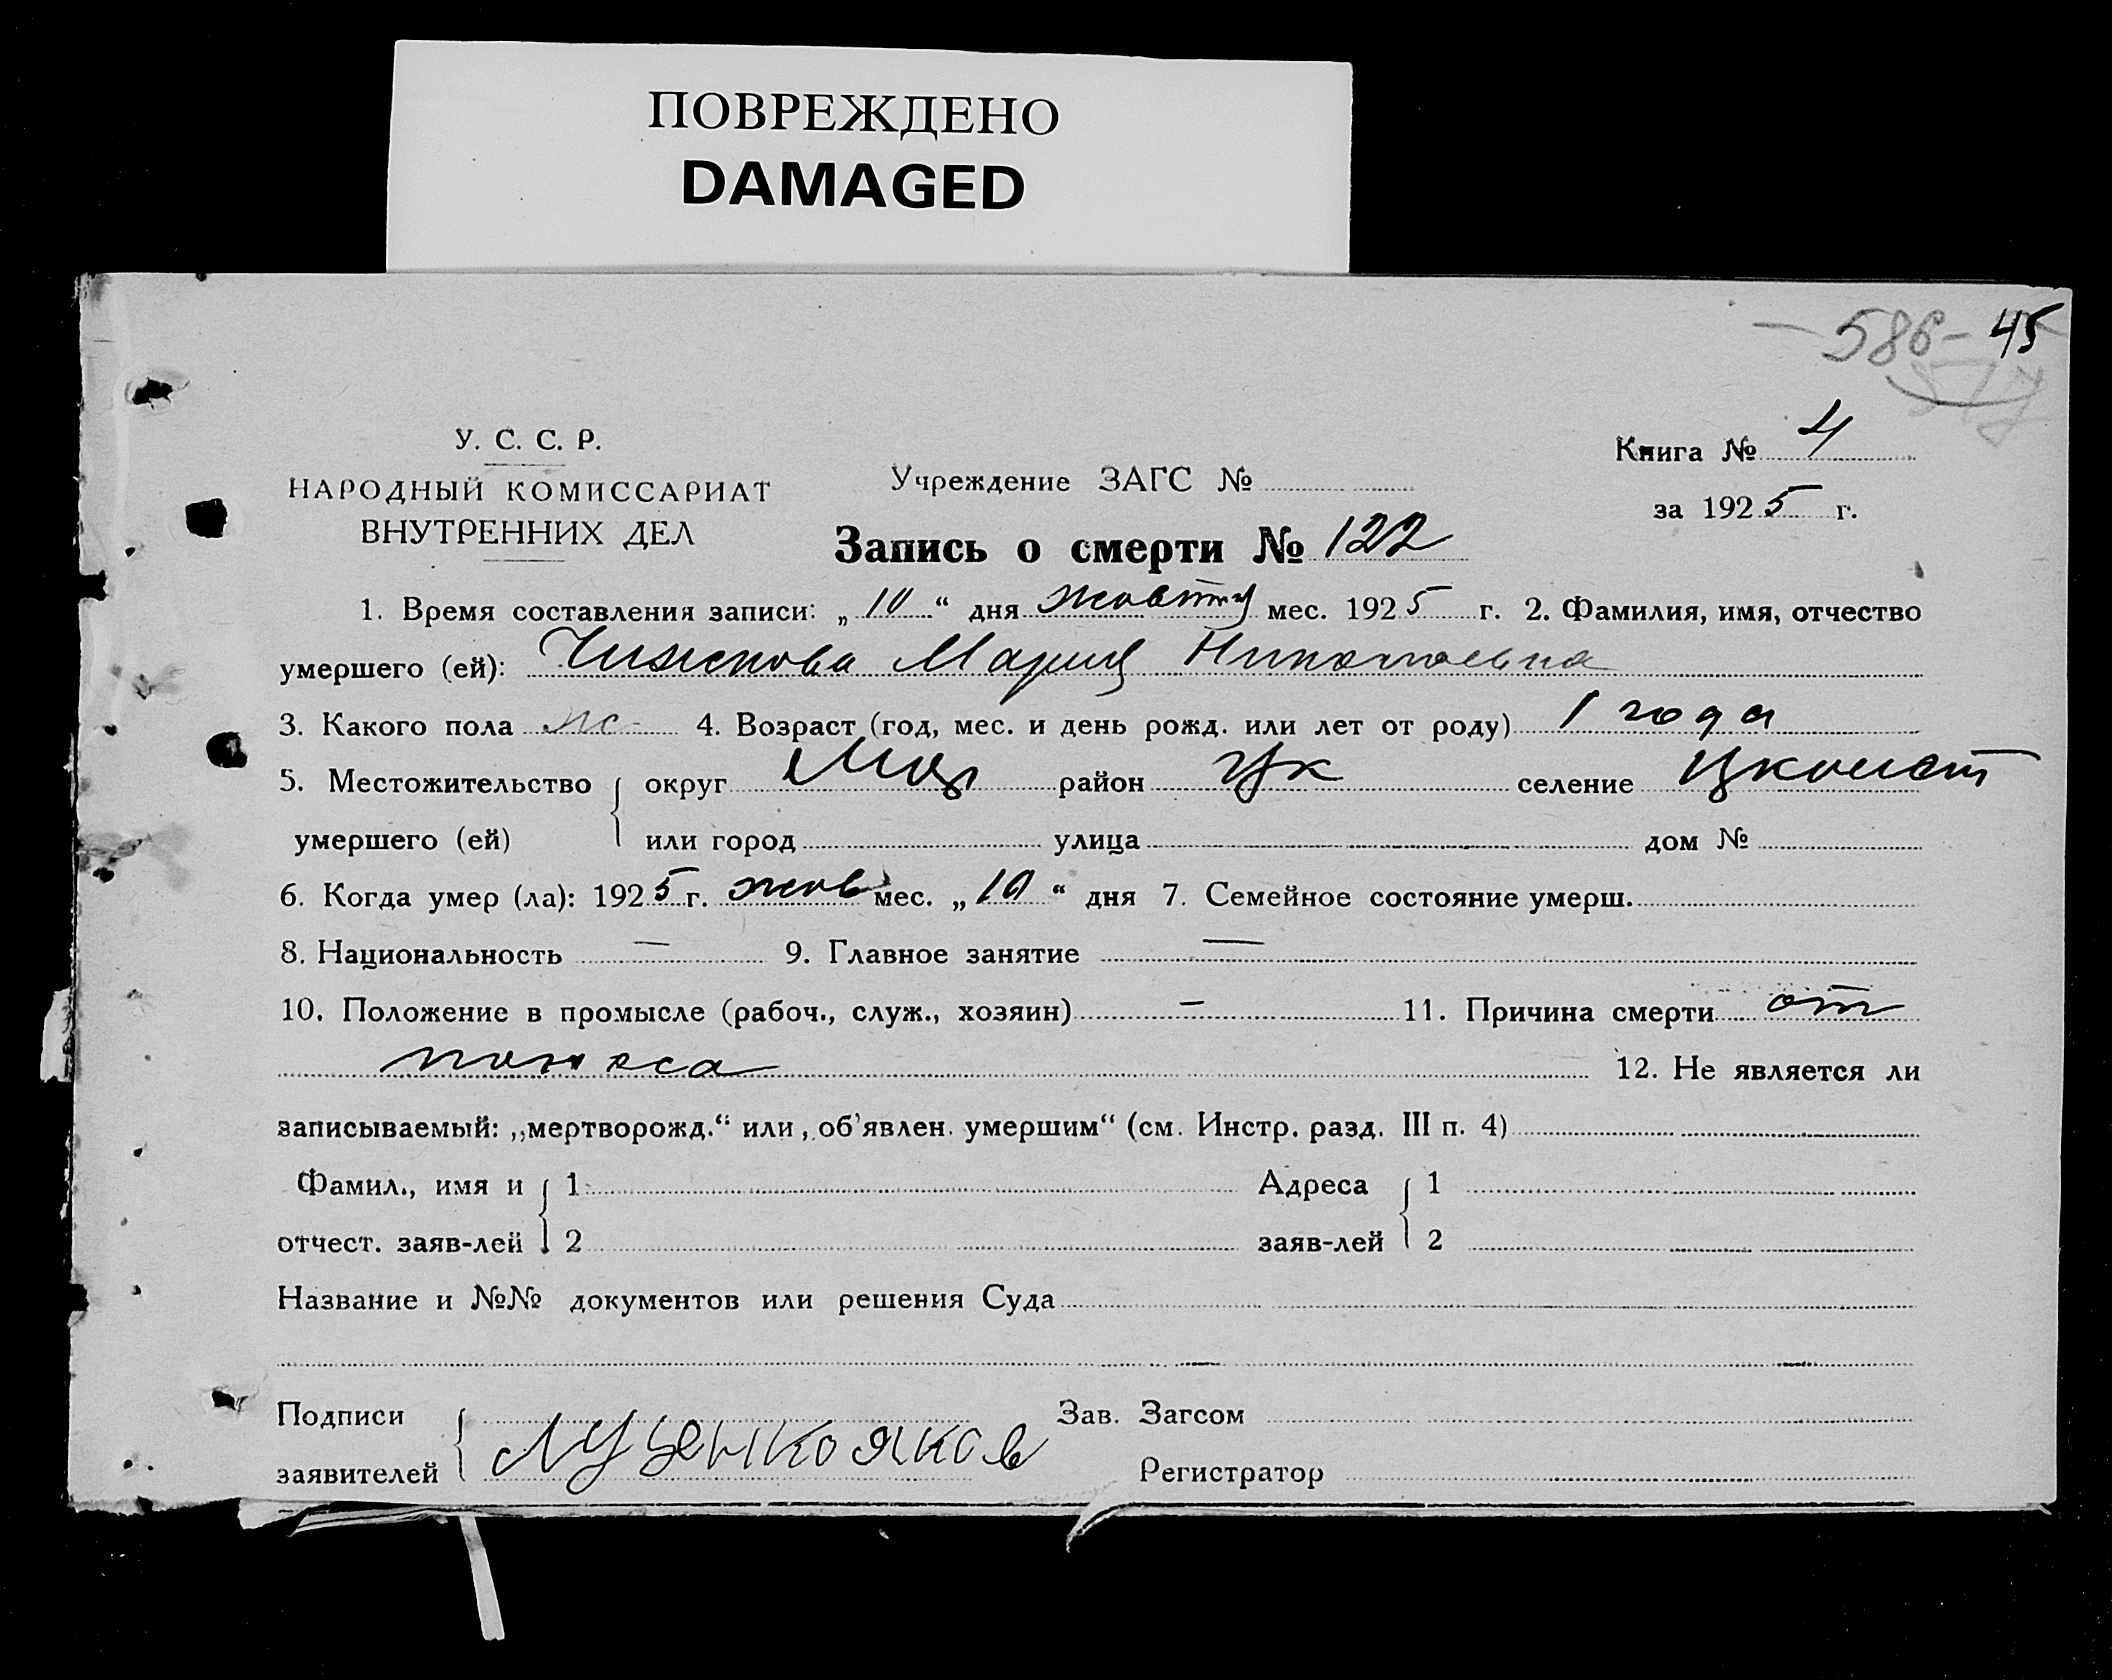 ПОВРЕЖДЕНО
DAMAGED
-586- 45
У. С. С. Р.
НАРОДНЫЙ КОМИССАРИАТ
ВНУТРЕННИХ ДЕЛ
Учреждение ЗАГС №
Книга № 4
за 1925 г.
Запись о смерти № 122
1. Время составления записи: „10“ дня жовтня мес. 1925 г. 2. Фамилия, имя, отчество
умершего (ей): Мария Николаевна
3. Какого пола ж 4. Возраст (год, мес. и день рожд. или лет от роду) 1 года
5. Местожительство округ район селение
умершего (ей) или город улица дом №
6. Когда умер (ла): 1925 г. жов мес. „10“ дня 7. Семейное состояние умерш.
8. Национальность — 9. Главное занятие —
10. Положение в промысле (рабоч., служ., хозяин) — 11. Причина смерти от
поноса 12. Не является ли
записываемый: „мертворожд.“ или „об'явлен. умершим“ (см. Инстр. разд. III п. 4)
Фамил., имя и 1 Адреса 1
отчест. заяв-лей 2 заяв-лей 2
Название и №№ документов или решения Суда
Подписи Зав. Загсом
заявителей Регистратор